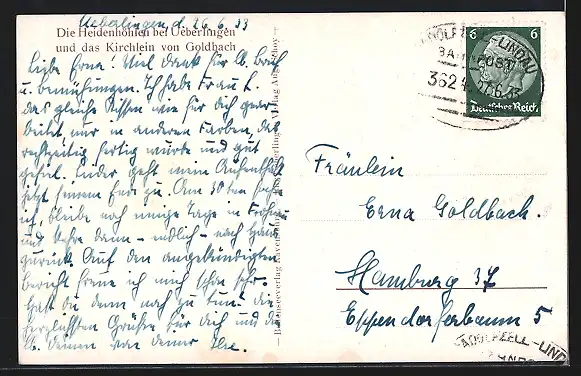 Ueberlingen d. 26.6.33
Die Heidenhöhlen bei Ueberlingen
und das Kirchlein von Goldbach
Liebe Erna! Viel Dank für lb. Brief
u. Bemühungen. Ich habe Frau L.
das gleiche Kissen wie für dich gear-
beitet nur in anderen Farben, das
rechtzeitig fertig wurde und gut
gefiel. Leider geht mein Aufenthalt
jetzt seinem Ende zu. Am 30ten
ich, bleibe noch einige Tage in
und kehre dann - endlich - nach Haus
zurück. Auf den angekündigten
Bericht freue ich mich schon sehr.
Hast du denn noch zu tun? Die
herzlichsten Grüße für Dich und die
lb. Deinen von Deiner
6 6
Deutsches Reich
RADOLFZELL-LINDAU
BAHNPOST
Fräulein
Erna Goldbach.
Hamburg 37
Eppendorferbaum 5
RADOLFZELL-LINDAU